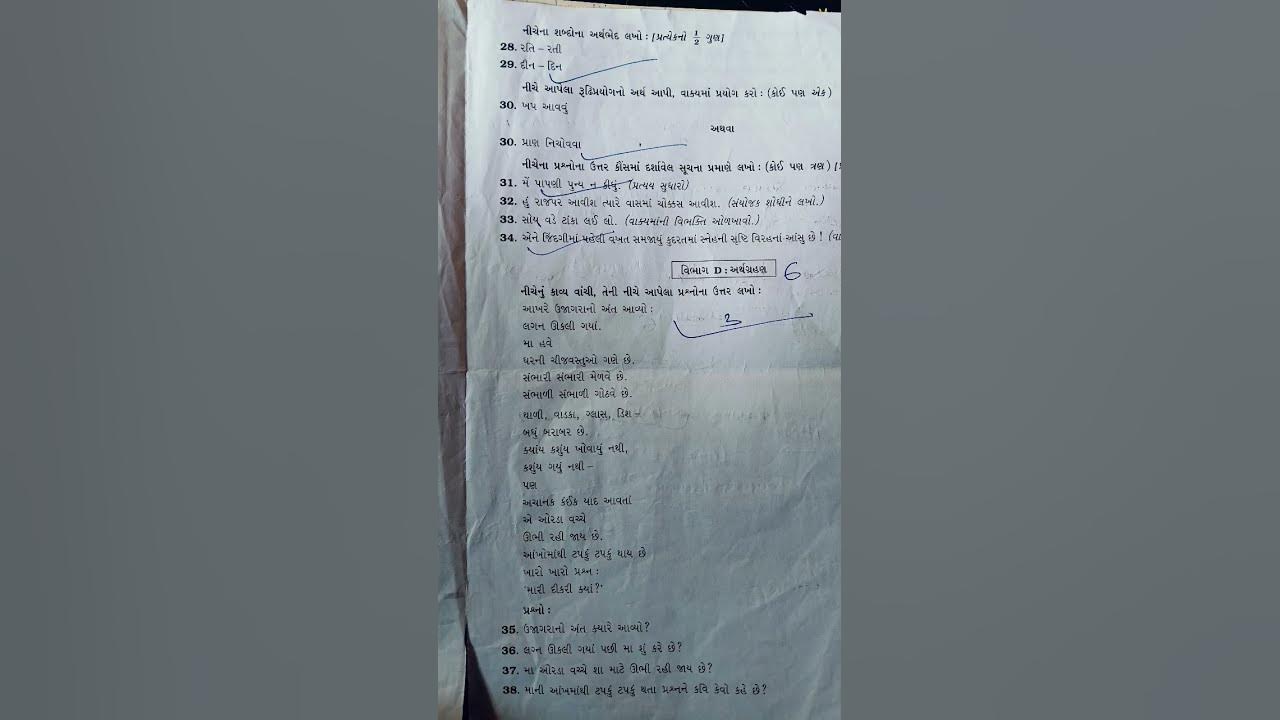 નીચેના શબ્દોના અર્થભેદ લખો : [પ્રત્યેકનો 1/2 ગુણ]
28. રતિ – રતી
29. દીન – દિન
નીચે આપેલા રૂઢિપ્રયોગનો અર્થ આપી, વાક્યમાં પ્રયોગ કરો : (કોઈ પણ એક)
30. ખપ આવવું
અથવા
30. પ્રાણ નિચોવવા
નીચેના પ્રશ્નોના ઉત્તર કૌંસમાં દર્શાવેલ સૂચના પ્રમાણે લખો : (કોઈ પણ ત્રણ)
31. મેં પાપણી પુન્ય ન કીધું. (પ્રત્યય સુધારો)
32. હું રાજપર આવીશ ત્યારે વાસમાં ચોક્કસ આવીશ. (સંયોજક શોધીને લખો.)
33. સોય વડે ટાંકા લઈ લો. (વાક્યમાંની વિભક્તિ ઓળખાવો.)
34. એને જિંદગીમાં પહેલી વખત સમજાયું કુદરતમાં સ્નેહની સૃષ્ટિ વિરહનાં આંસુ છે !
વિભાગ D : અર્થગ્રહણ 6
નીચેનું કાવ્ય વાંચી, તેની નીચે આપેલા પ્રશ્નોના ઉત્તર લખો :
આખરે ઉજાગરાનો અંત આવ્યો :
લગન ઊકલી ગયાં.
મા હવે
ઘરની ચીજવસ્તુઓ ગણે છે.
સંભારી સંભારી મેળવે છે.
સંભાળી સંભાળી ગોઠવે છે.
થાળી, વાડકા, ગ્લાસ, ડિશ –
બધું બરાબર છે.
ક્યાંય કશુંય ખોવાયું નથી,
કશુંય ગયું નથી –
પણ
અચાનક કંઈક યાદ આવતાં
એ ઓરડા વચ્ચે
ઊભી રહી જાય છે.
આંખોમાંથી ટપકું ટપકું થાય છે
ખારો ખારો પ્રશ્ન :
'મારી દીકરી ક્યાં?'
પ્રશ્નો :
35. ઉજાગરાનો અંત ક્યારે આવ્યો?
36. લગ્ન ઊકલી ગયાં પછી મા શું કરે છે?
37. મા ઓરડા વચ્ચે શા માટે ઊભી રહી જાય છે?
38. માની આંખમાંથી ટપકું ટપકું થતા પ્રશ્નને કવિ કેવો કહે છે?